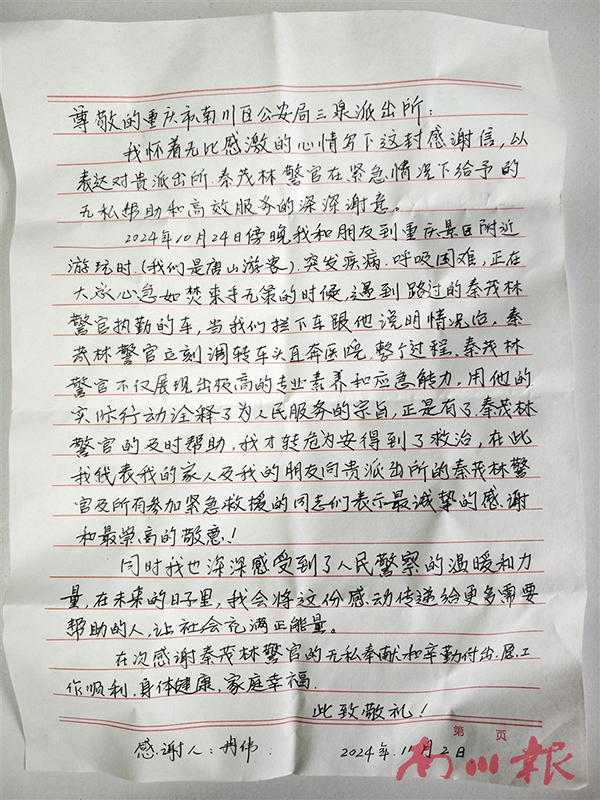 尊敬的重庆市南川区公安局三泉派出所:
我怀着无比感激的心情写下这封感谢信,以
表达对贵派出所.秦茂林警官在紧急情况下给予的
无私帮助和高效服务的深深谢意。
2024年10月24日傍晚我和朋友到重庆景区附近
游玩时.(我们是唐山游客).突发疾病.呼吸困难,正在
大家心急如焚束手无策的时候,遇到路过的秦茂林
警官执勤的车,当我们拦下车跟他说明情况后,秦
茂林警官立刻调转车头直奔医院,整个过程.秦茂林
警官不仅展现出极高的专业素养和应急能力,用他的
实际行动诠释了为人民服务的宗旨,正是有了秦茂林
警官的及时帮助,我才转危为安得到了救治,在此
我代表我的家人及我的朋友向贵派出所的秦茂林警
官及所有参加紧急救援的同志们表示最诚挚的感谢
和最崇高的敬意!
同时我也深深感受到了人民警察的温暖和力
量,在未来的日子里,我会将这份感动传递给更多需要
帮助的人,让社会充满正能量。
在次感谢秦茂林警官的无私奉献和辛勤付出.愿.工
作顺利.身体健康,家庭幸福.
此致敬礼!
第 页
感谢人:冉伟 2024年.11月2日
南川报